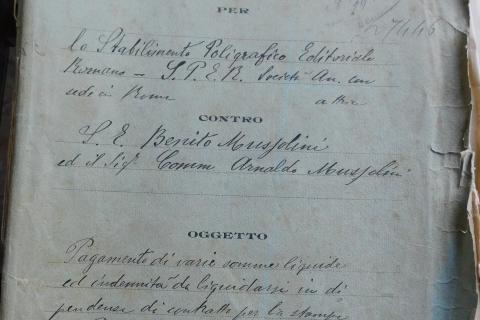 PER
27446
lo Stabilimento Poligrafico Editoriale
Romano - S.P.E.R. Società An. con
sede in Roma
CONTRO
S. E. Benito Mussolini
ed il Sig. Comm Arnaldo Mussolini
OGGETTO
Pagamento di varie somme liquide
ed indennità da liquidarsi in di
pendenza di contratto per la stampa